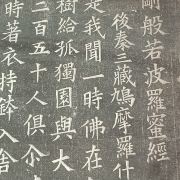 剛般若波羅蜜經
後秦三藏鳩摩羅什
是我聞一時佛在
樹給孤獨園與大
二百五十人俱尒
時著衣持鉢入舍